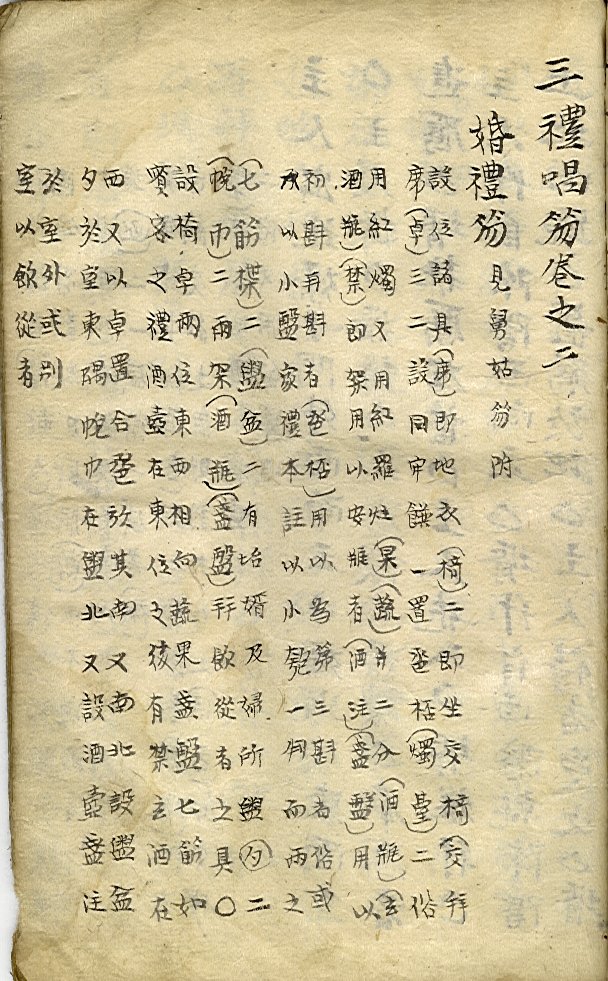 三禮唱笏卷之二
婚禮笏 見舅姑笏附
設位諸具(席)即地衣(椅)二即坐交椅(交拜
席)(卓)三二設同牢饌一置巹杯(燭臺)二俗
用紅燭又用紅羅炷(果)(蔬)并二分(酒瓶)(玄
酒瓶)(禁)即架用以安瓶者(酒注)(盞盤)用以
初斟再斟者(巹杯)用以為第三斟者俗或
以小盤家禮本註以小匏一判而兩之
(匕筯楪)二(盥盆)二有坮婿及婦所盥(勺)二
(帨巾)二兩架(酒瓶)(盞盤)并飲從者之具○
設椅卓兩位東西相向蔬果盞盤匕筯如
賓客之禮酒壺在東位之後有禁玄酒在
西又以卓置合巹於其南又南北設盥盆
勺於室東隅帨巾在盥北又設酒壺盞注
於室外或別
室以飲從者